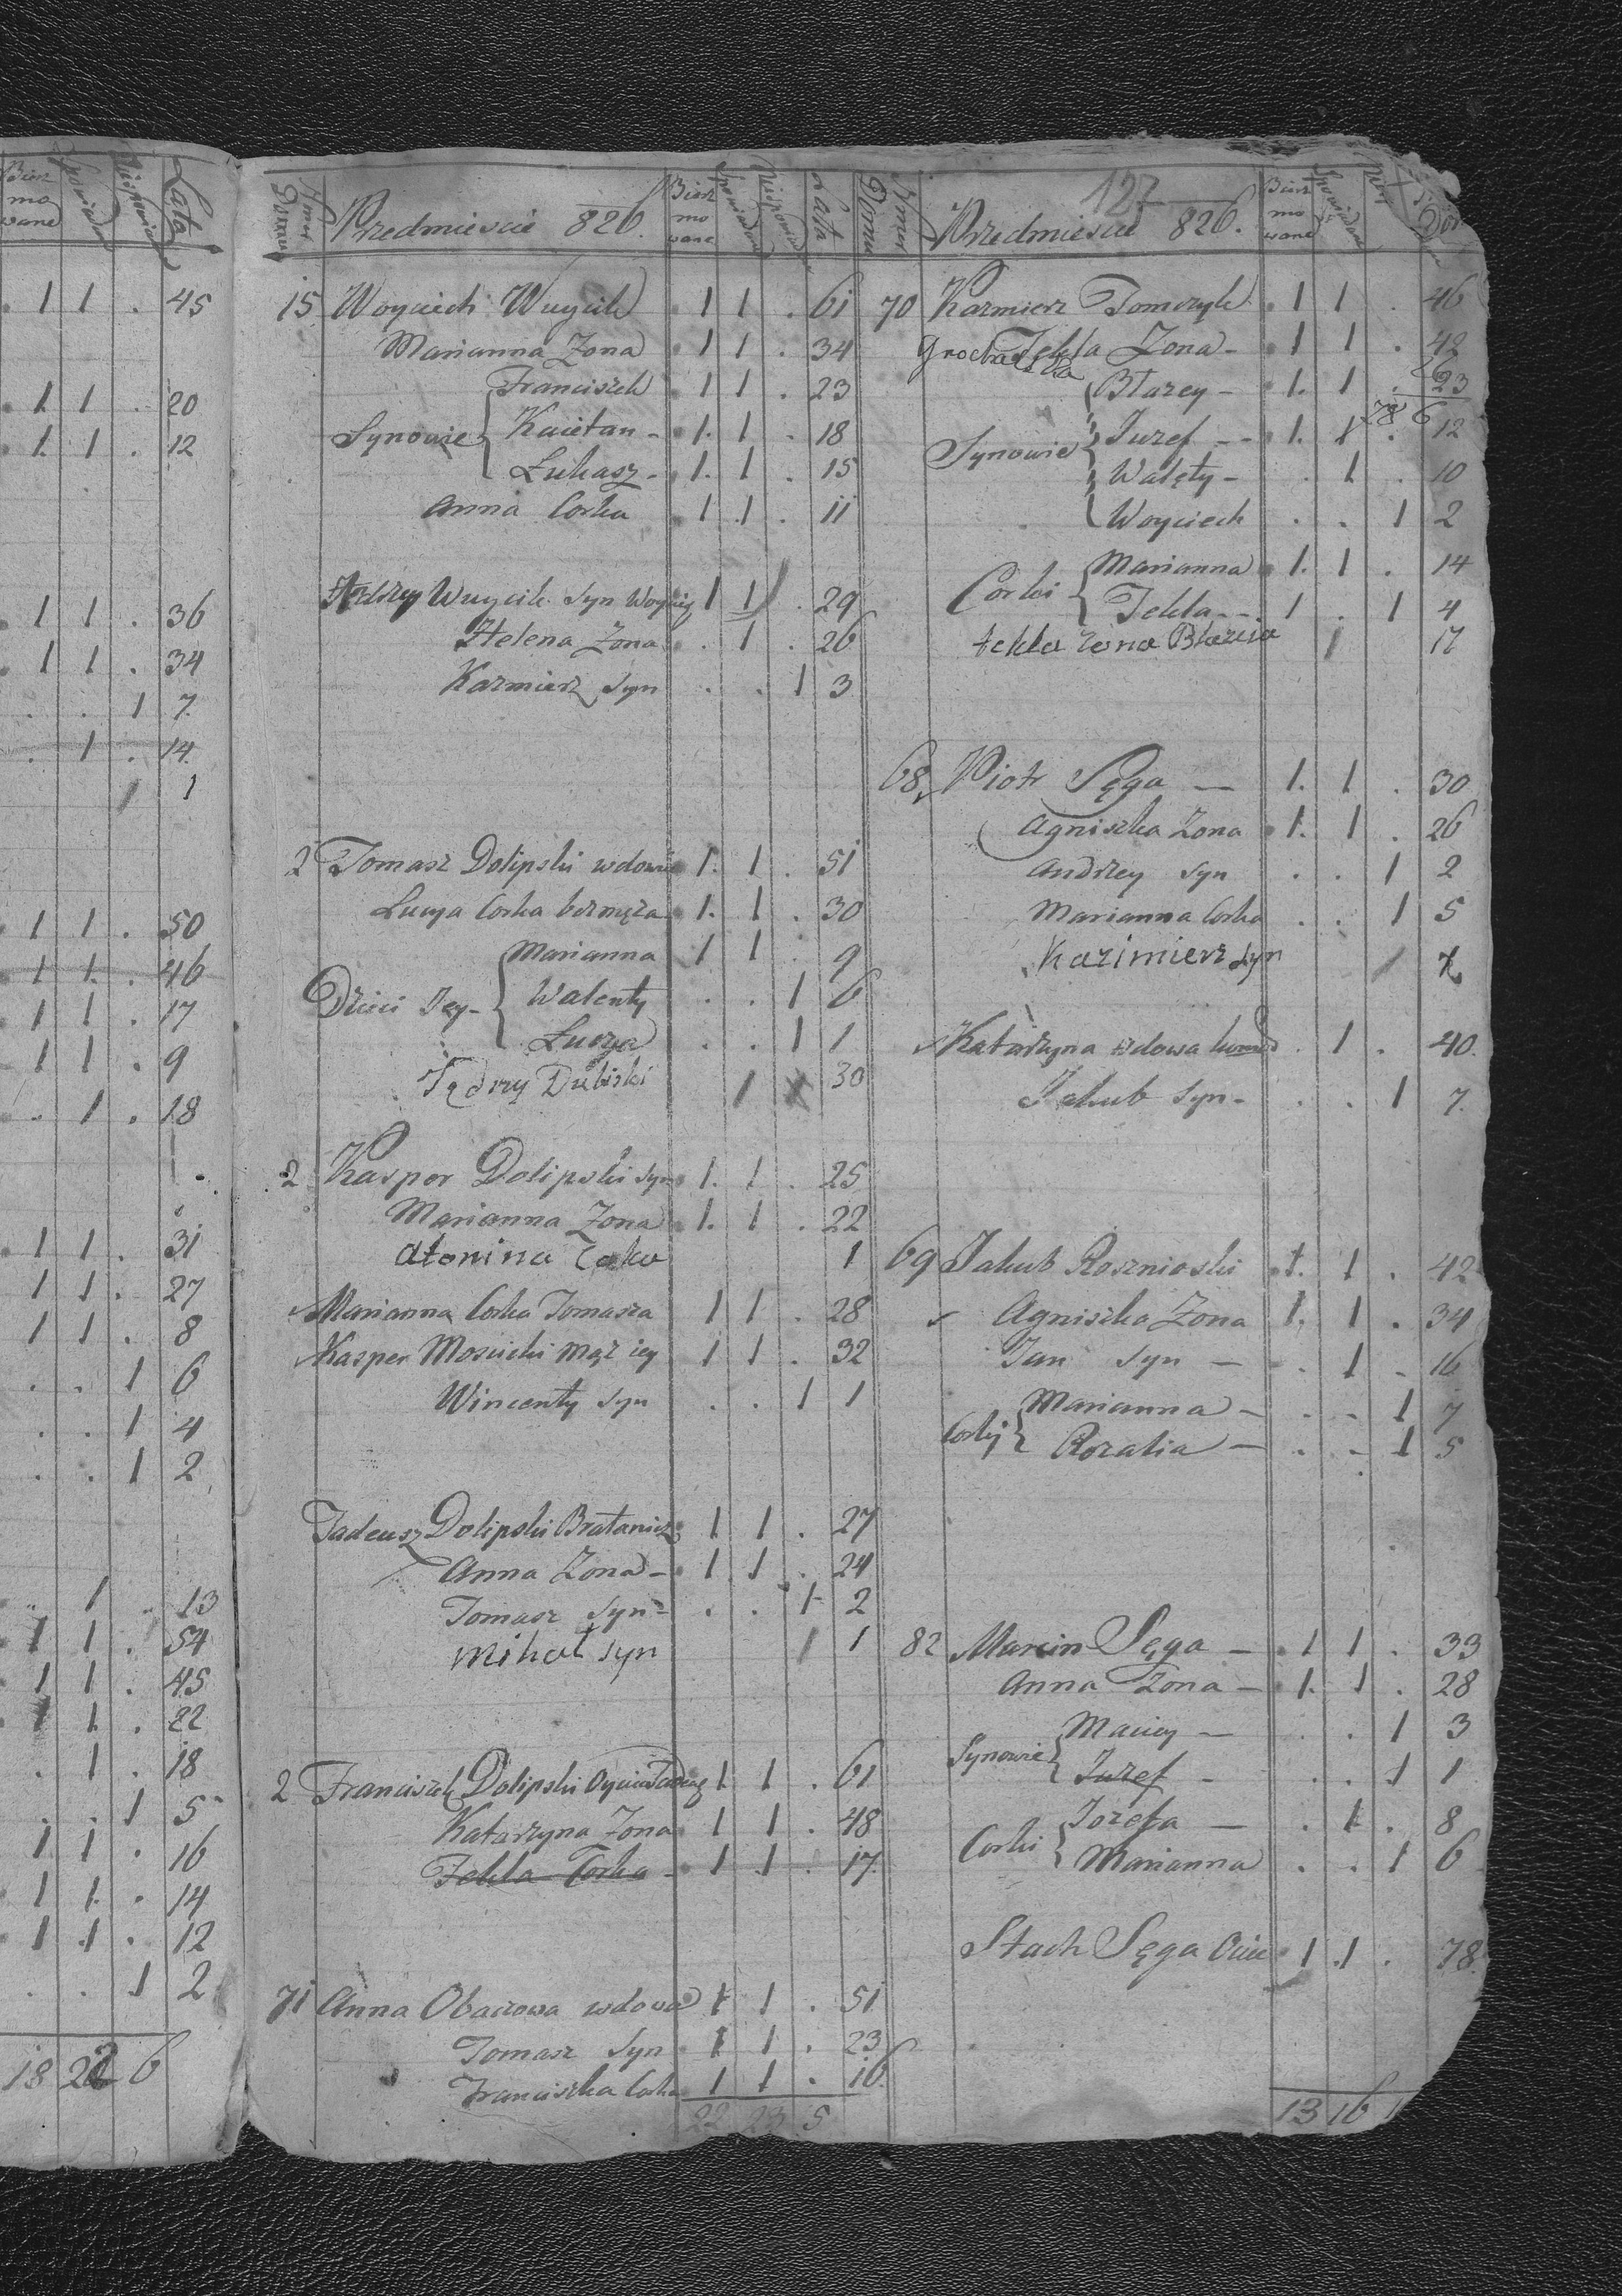 Bierz mo wane Spowiad Niespowia Lata
1 1 . 45
1 1 . 20
1 1 . 12
1 1 . 36
1 1 . 34
. . 1 7
. 1 . 14
1 1
1 1 . 50
1 1 . 46
1 1 . 17
1 1 . 9
. 1 . 18
1 1 . 31
1 1 . 27
1 1 . 8
. . 1 6
. . 1 4
. . 1 2
1 . 13
1 1 . 54
1 1 . 45
1 1 . 22
. 1 . 18
. . 1 5
1 1 . 16
1 1 . 14
1 1 . 12
. . 1 2
18 22 6
Nmer Domu Przedmiescie 826. Bierz mo wane Lata
15 Woyciech Wuycik 1 1 . 61
Marianna Zona 1 1 . 34
Synowie Franciszek 1 1 . 23
Kaietan - 1. 1 . 18
Łukasz - 1. 1 . 15
Anna Corka 1 1 . 11
Wuycik Syn 1 1 . 29
Helena Zona . 1 . 26
Kazmierz Syn . . 1 3
2 Tomasz Dolipski wdowiec 1. 1 . 51
Lucya Corka bezmęża 1. 1 . 30
Dzieci Jey - Marianna 1 1 . 9
Walenty . . 1 6
Lucya . . 1 1
Jędrzy Dubiski 1 1 30
2 Kasper Dolipski Syn 1. 1 . 25
Marianna Zona 1. 1 . 22
Atonina Coka 1
Marianna Corka Tomasza 1 1 . 28
Kasper Moscicki mąż iey 1 1 . 32
Wincenty Syn . . 1 1
Tadeusz Dolipski Bratanic 1 1 . 27
Anna Zona - 1 1 . 24
Tomasz Syn - . . 1 2
Mihał syn 1 1
2 Franciszek Dolipski 1 1 . 61
Katarzyna Zona 1 1 . 48
Tekla Corka - 1 1 . 17
71 Anna Obacowa wdowa 1 1 . 51
Tomasz Syn 1 1 . 23
Franciszka Corka 1 1 . 16
22 23 5
127
Nmer Domu Przedmiescie 826. Bierz mo wane
70 Kazmierz Tomczyk 1 1 . 46
Tekla Zona - 1 1 . 42
Synowie Błazey - 1. 1 . 23
Iuzef - - 1. 1 . 12
Walęty - . 1 . 10
Woyciech . . 1 2
Corki Marianna 1. 1 . 14
Tekla - - 1 . 1 4
tekla zona Błazeia 1 17
68 Piotr Sęga - 1. 1 . 30
Agniszka Zona 1. 1 . 26
Andrzey Syn . . 1 2
Marianna Corka . . 1 5
Kazimierz Syn 1
Katarzyna wdowa . 1 . 40.
Jakub Syn - . . 1 7.
69 Jakub Rosznioski 1. 1 . 42
Agniszka Zona 1. 1 . 34
Jan Syn - . 1 . 16
Corky Marianna - . . 1 7
Rozalia - . . 1 5
82 Marcin Sęga - 1 1 . 33
Anna Zona - 1. 1 . 28
Synowie Maciey - . . 1 3
Iuzef - . . 1 1
Corki Jozefa - . 1 . 8
Marianna . . 1 6
Stach Sęga Ociec 1 1 . 78
13 16 1